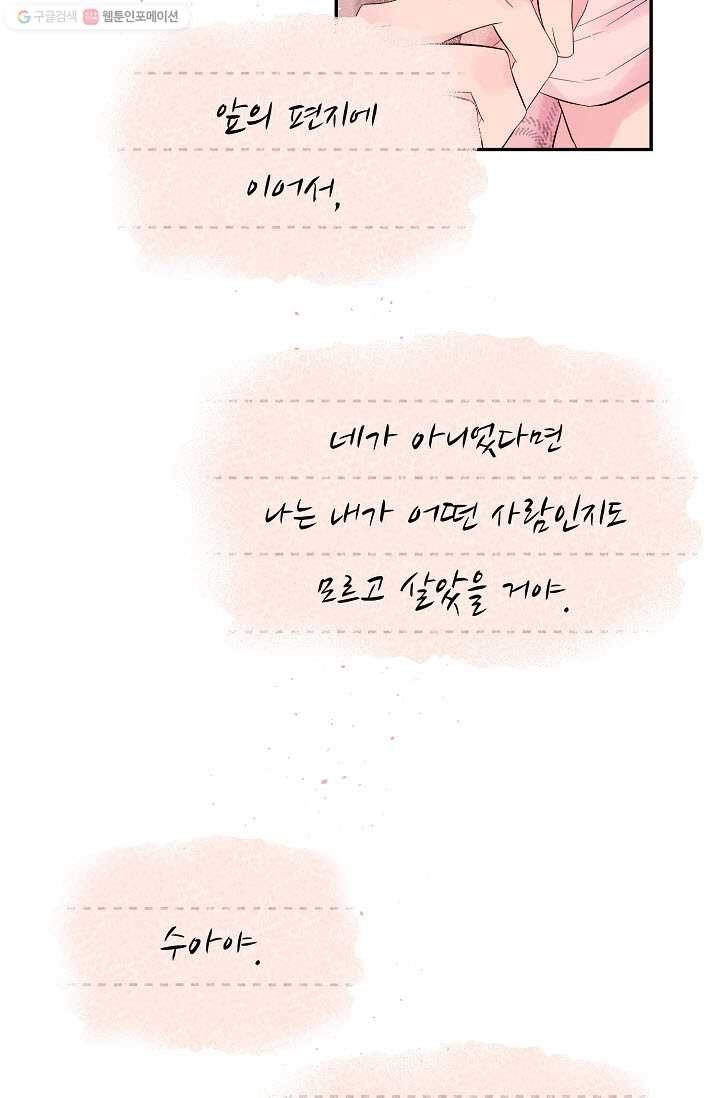 구글검색 웹툰인포메이션
앞의 편지에
이어서,
네가 아니었다면
나는 내가 어떤 사람인지도
모르고 살았을 거야.
수아야.